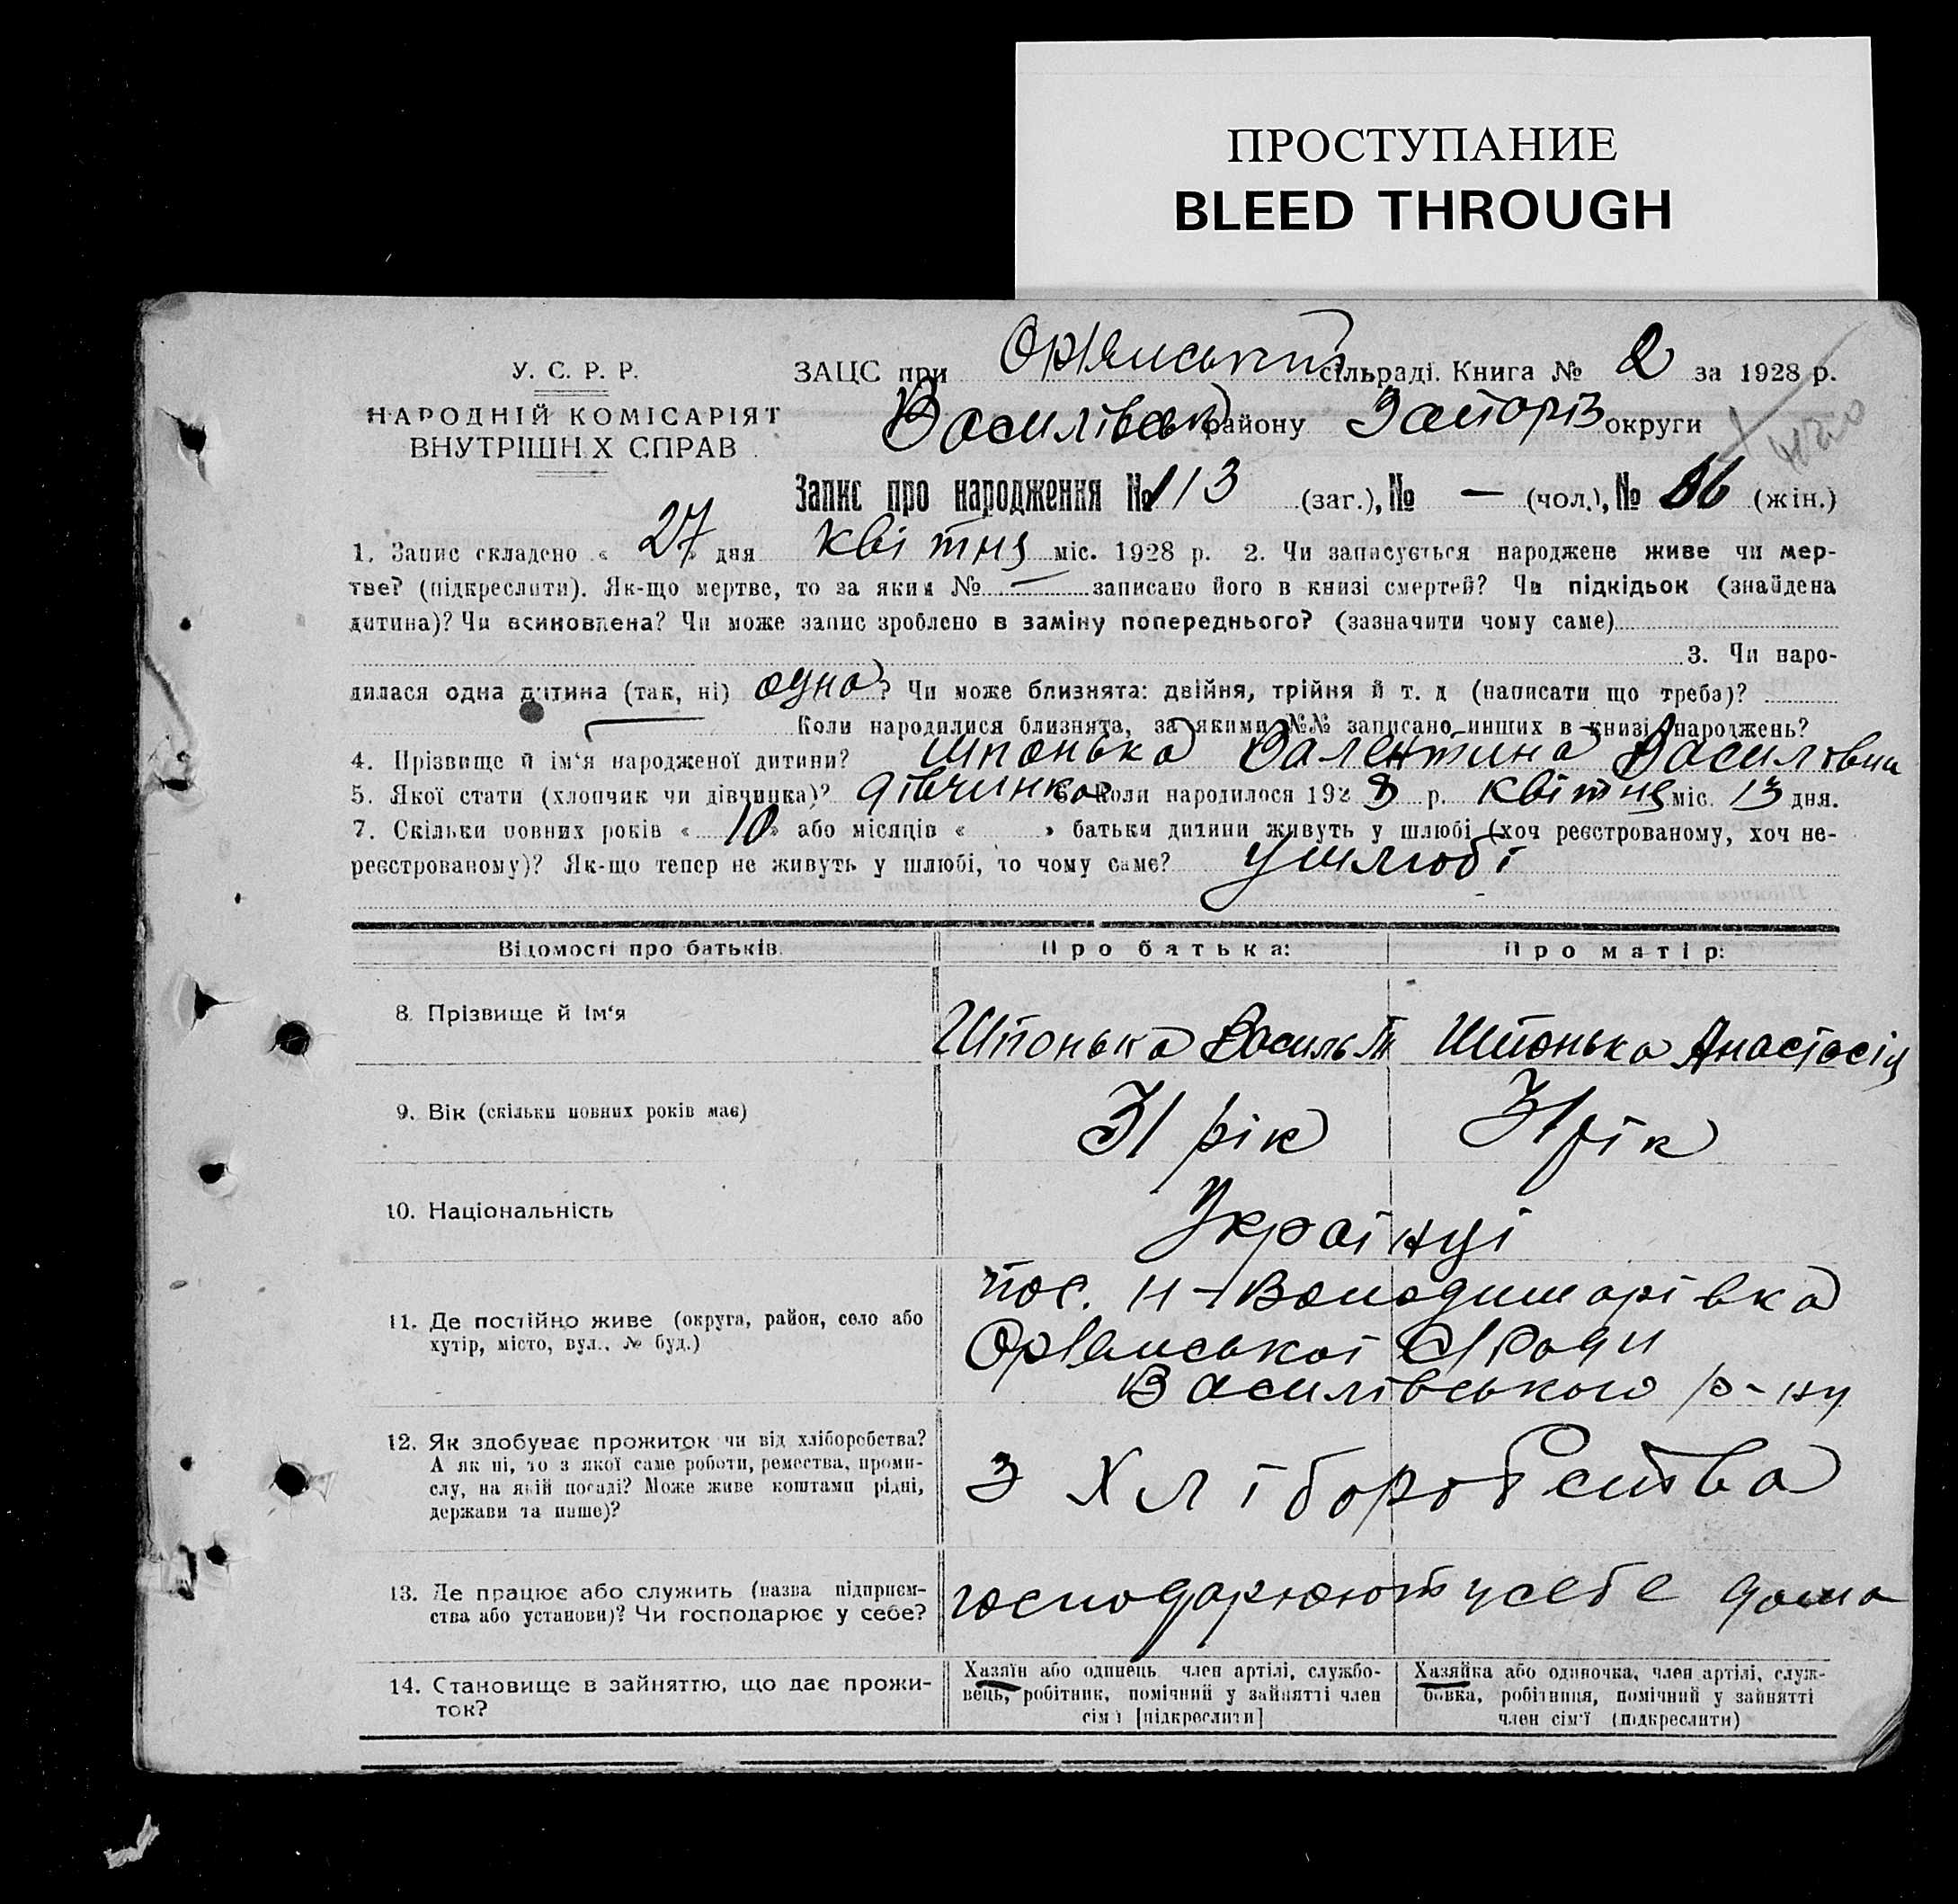 ПРОСТУПАНИЕ
BLEED THROUGH
У. С. Р. Р.
НАРОДНІЙ КОМІСАРІЯТ
ВНУТРІШН Х СПРАВ
ЗАЦС при Орлянський сільраді. Книга № 2 за 1928 р.
Василівськ району Запоріз округи
Запис про народження № 113 (заг.), № — (чол.), № 56 (жін.)
1. Запис складено « 27 » дня квітня міс. 1928 р. 2. Чи записується народжене живе чи мер-
тве? (підкреслити). Як-що мертве, то за яким № — записано його в книзі смертей? Чи підкідьок (знайдена
дитина)? Чи всиновлена? Чи може запис зроблено в заміну попереднього? (зазначити чому саме)
3. Чи наро-
дилася одна дитина (так, ні) одна? Чи може близнята: двійня, трійня й т. д (написати що треба)?
Коли народилися близнята, за якими №№ записано инших в книзі народжень?
4. Прізвище й ім'я народженої дитини? Шпонька Валентина Василівна
5. Якої стати (хлопчик чи дівчинка)? дівчинка 6. Коли народилося 1928 р. квітня міс. 13 дня.
7. Скільки повних років « 10 » або місяців « » батьки дитини живуть у шлюбі (хоч реєстрованому, хоч не-
реєстрованому)? Як-що тепер не живуть у шлюбі, то чому саме? у шлюбі
Відомості про батьків.
Про батька:
Про матір:
8. Прізвище й ім'я
Шпонька Василь
Шпонька Анастасія
9. Вік (скільки повних років має)
31 рік
31 рік
10. Національність
Українці
11. Де постійно живе (округа, район, село або
хутір, місто, вул., № буд.)
пос. Н-Володимирівка
Орлянської С/Ради
Василівського р-ну
12. Як здобуває прожиток чи від хліборобства?
А як ні, то з якої саме роботи, ремества, проми-
слу, на якій посаді? Може живе коштами рідні,
держави та инше)?
з хліборобства
13. Де працює або служить (назва підприєм-
ства або установи)? Чи господарює у себе?
господарюют у себе дома
14. Становище в зайняттю, що дає прожи-
ток?
Хазяїн або одинець, член артілі, службо-
вець, робітник, помічний у зайнятті член
сім'ї [підкреслити]
Хазяйка або одиночка, член артілі, служ-
бовка, робітниця, помічний у зайнятті
член сім'ї (підкреслити)